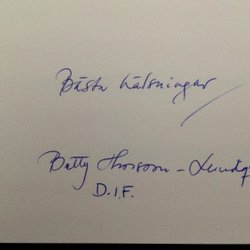 Bästa hälsningar
Betty Thorsson - Lundq
D.I.F.